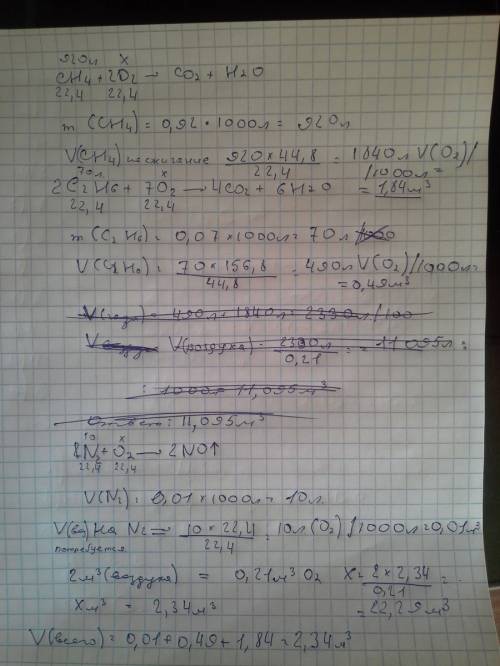 920л x
CH4 + 2O2 → CO2 + H2O
22,4 22,4
m (CH4) = 0,92 · 1000л = 920л
V(CH4) на сжигание 920 × 44,8 / 22,4 = 1840л V(O2)/
/1000л =
70л x = 1,84м³
2C2H6 + 7O2 → 4CO2 + 6H2O
22,4 22,4
m (C2H6) = 0,07 × 1000л = 70л
V(C2H6) = 70 × 156,8 / 44,8 = 490л V(O2)/1000л =
= 0,49м³
= 490л + 1840л = 2330л/100
V(воздуха) = 2330л / 0,21 = 11095л :
: 1000 = 11,095м³
Ответ: 11,095м³
10 x
N2 + O2 → 2NO↑
22,4 22,4
V(N2) = 0,01 × 1000л = 10л
V на N2 = 10 × 22,4 / 22,4 = 10л (O2) / 1000л = 0,01м³
потребуется
2м³ (воздуха) = 0,21м³ O2 X = 2 × 2,34 / 0,21 =
Xм³ = 2,34м³ = 22,29м³
V(всего) = 0,01 + 0,49 + 1,84 = 2,34м³